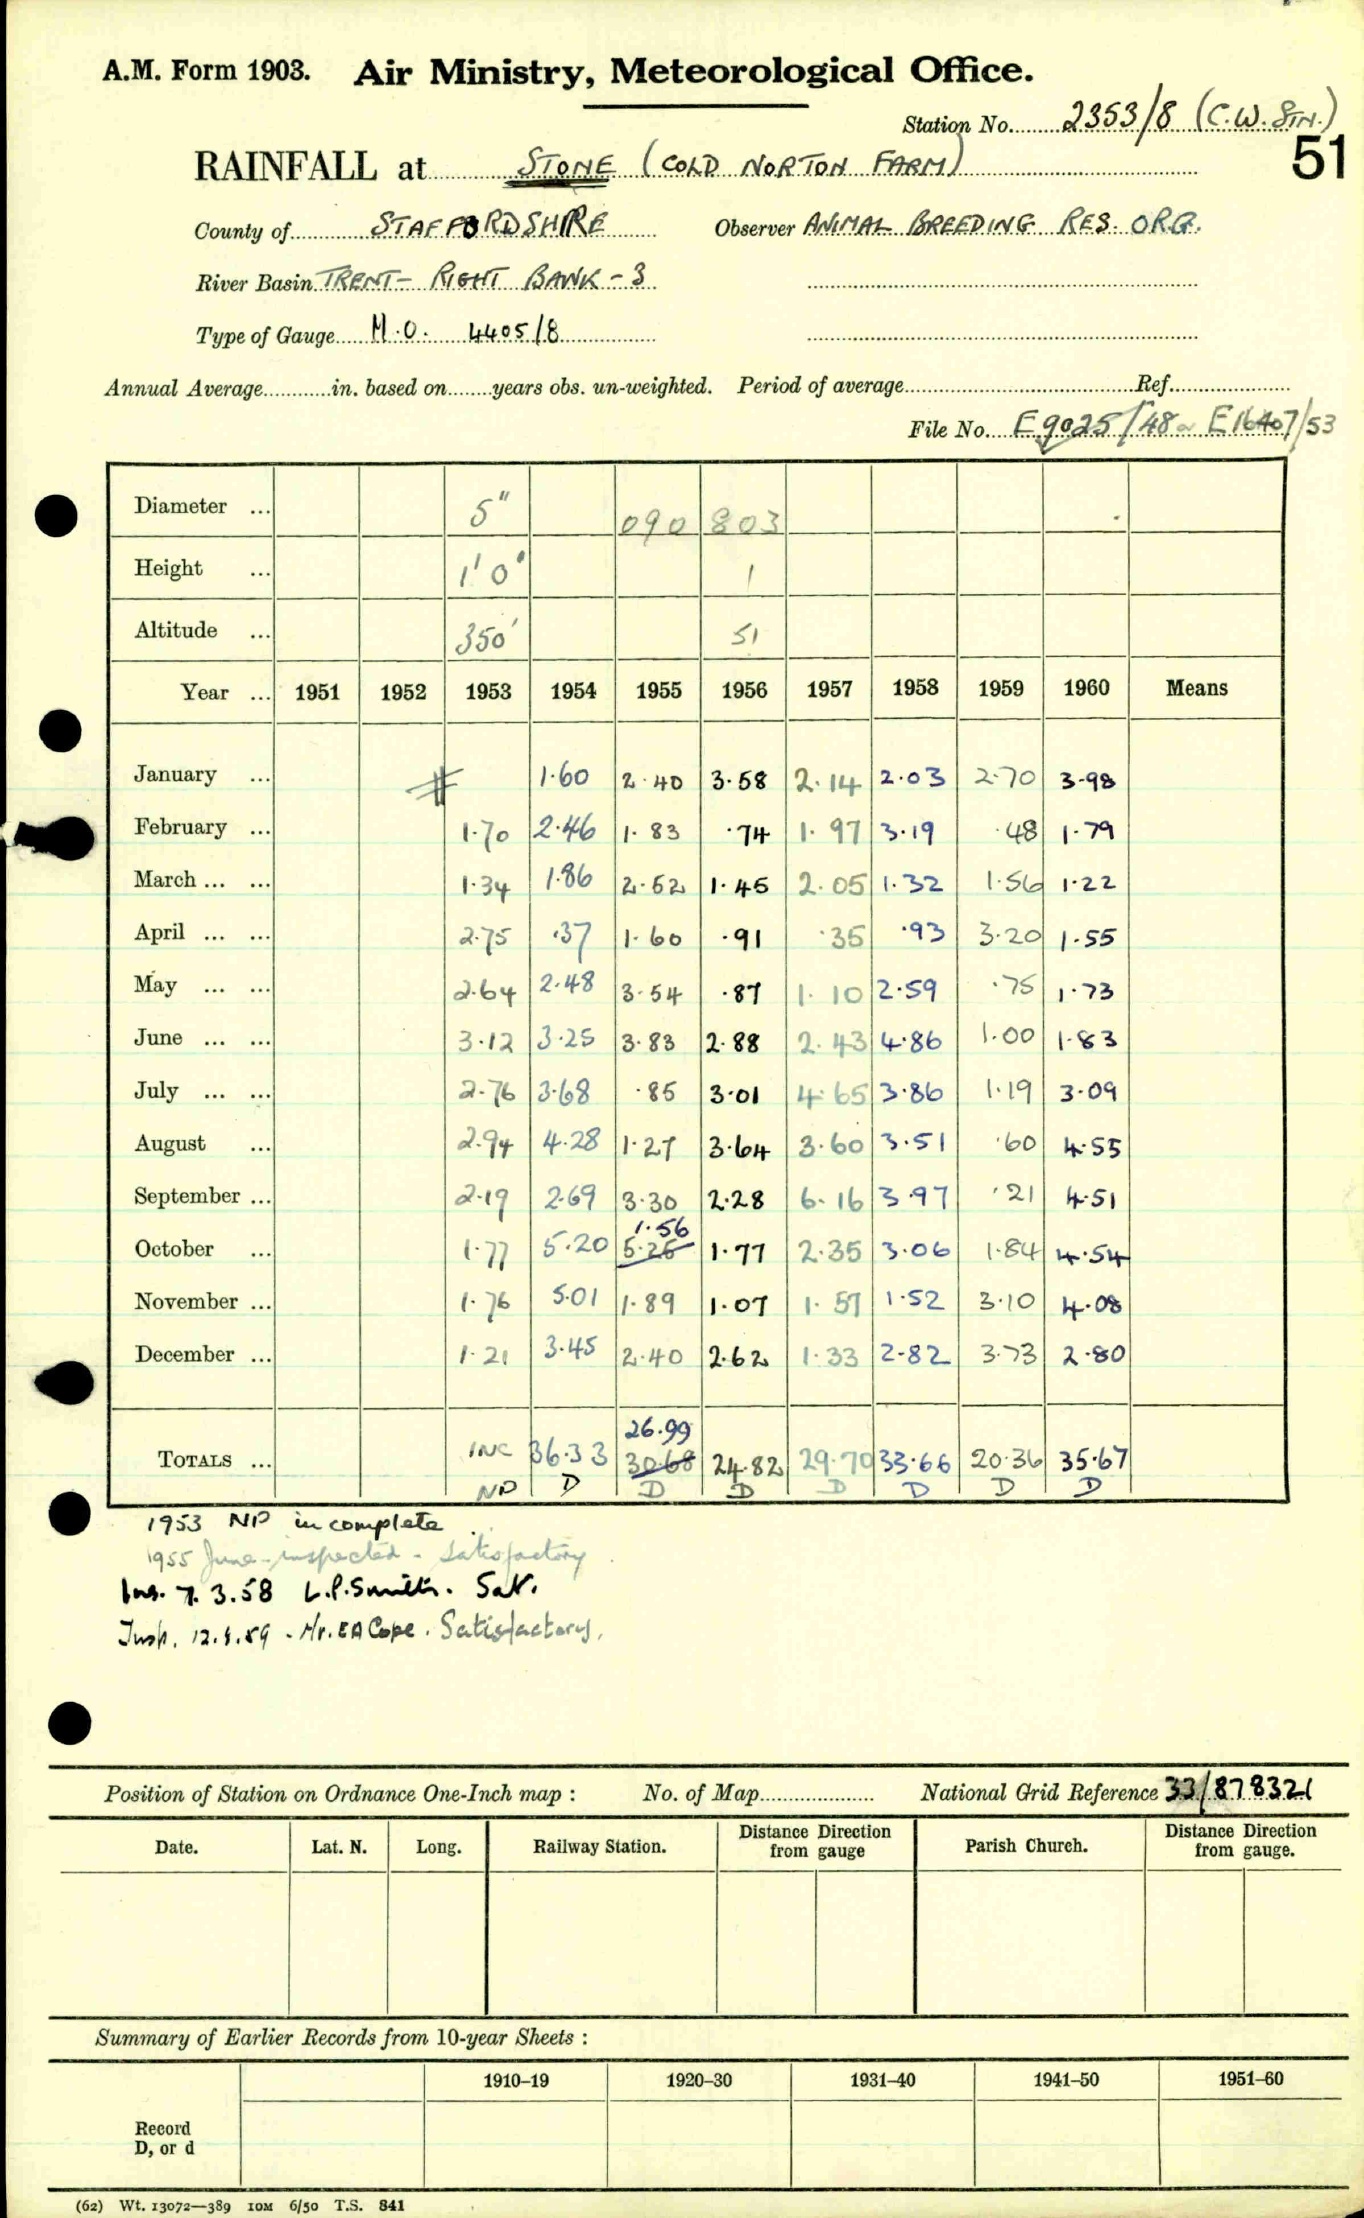 A.M. Form 1903. Air Ministry, Meteorological Office.
Station No. 2353/8 (C.W. STN.)
51
RAINFALL at STONE (COLD NORTON FARM)
County of STAFFORDSHIRE Observer ANIMAL BREEDING RES. ORG.
River Basin TRENT - RIGHT BANK - 3
Type of Gauge M.O. 4405/8
Annual Average in. based on years obs. un-weighted. Period of average Ref.
File No. E9025/48 E16407/53
Diameter ... 5" 090 803
Height ... 1' 0" 1
Altitude ... 350' 51
Year ... 1951 1952 1953 1954 1955 1956 1957 1958 1959 1960 Means
January ... 1.60 2.40 3.58 2.14 2.03 2.70 3.98
February ... 1.70 2.46 1.83 .74 1.97 3.19 .48 1.79
March ... ... 1.34 1.86 2.52 1.45 2.05 1.32 1.56 1.22
April ... ... 2.75 .37 1.60 .91 .35 .93 3.20 1.55
May ... ... 2.64 2.48 3.54 .87 1.10 2.59 .75 1.73
June ... ... 3.12 3.25 3.83 2.88 2.43 4.86 1.00 1.83
July ... ... 2.76 3.68 .85 3.01 4.65 3.86 1.19 3.09
August ... 2.94 4.28 1.27 3.64 3.60 3.51 .60 4.55
September ... 2.19 2.69 3.30 2.28 6.16 3.97 .21 4.51
1.56
October ... 1.77 5.20 5.25 1.77 2.35 3.06 1.84 4.54
November ... 1.76 5.01 1.89 1.07 1.57 1.52 3.10 4.08
December ... 1.21 3.45 2.40 2.62 1.33 2.82 3.73 2.80
26.99
TOTALS ... INC 36.33 30.68 24.82 29.70 33.66 20.36 35.67
NP D D D D D D D
1953 NP incomplete
1955 June - inspected - satisfactory.
Ins. 7.3.58 L.P. Smith. Sat.
Insp. 12.8.59 - Mr. EA Cope. Satisfactory.
Position of Station on Ordnance One-Inch map : No. of Map National Grid Reference 33/878321
Date. Lat. N. Long. Railway Station. Distance Direction from gauge Parish Church. Distance Direction from gauge.
Summary of Earlier Records from 10-year Sheets :
1910–19 1920–30 1931–40 1941–50 1951–60
Record
D, or d
(62) Wt. 13072—389 10M 6/50 T.S. 841